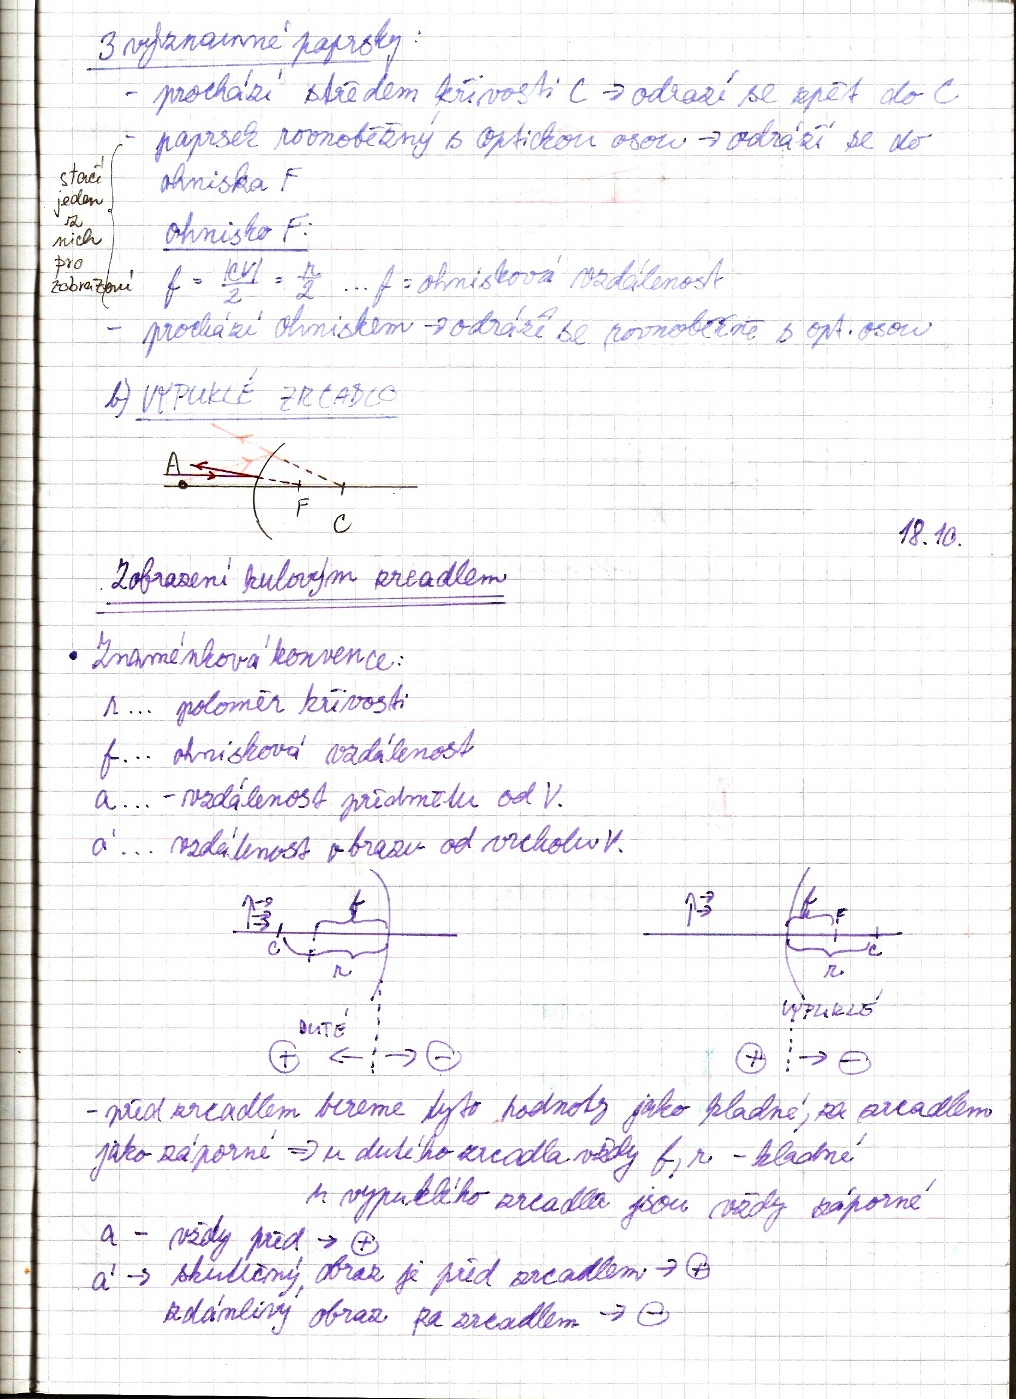 3 významné paprsky:
- prochází středem křivosti C → odrazí se zpět do C
- paprsek rovnoběžný s optickou osou → odráží se do
ohniska F
stačí
jeden
z
nich
pro
zobrazení
ohnisko F:
f = |CV|/2 = r/2 ... f = ohnisková vzdálenost
- prochází ohniskem → odráží se rovnoběžně s opt. osou
b) VYPUKLÉ ZRCADLO
A
F
C
18.10.
Zobrazení kulovým zrcadlem
• Znaménková konvence:
r... poloměr křivosti
f... ohnisková vzdálenost
a... - vzdálenost předmětu od V.
a'... vzdálenost obrazu od vrcholu V.
f
C F
r
f
F
C
r
DUTÉ
VYPUKLÉ
+ ← → -
+ → -
- před zrcadlem bereme tyto hodnoty jako kladné, za zrcadlem
jako záporné ⇒ u dutého zrcadla vždy f, r - kladné
u vypuklého zrcadla jsou vždy záporné
a - vždy před → +
a' → skutečný obraz je před zrcadlem → +
zdánlivý obraz za zrcadlem → -